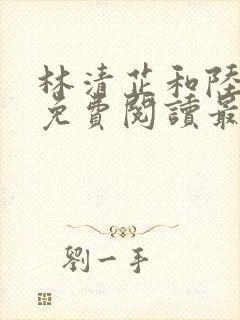 林清芷和陸
免費閱讀最
劉一手